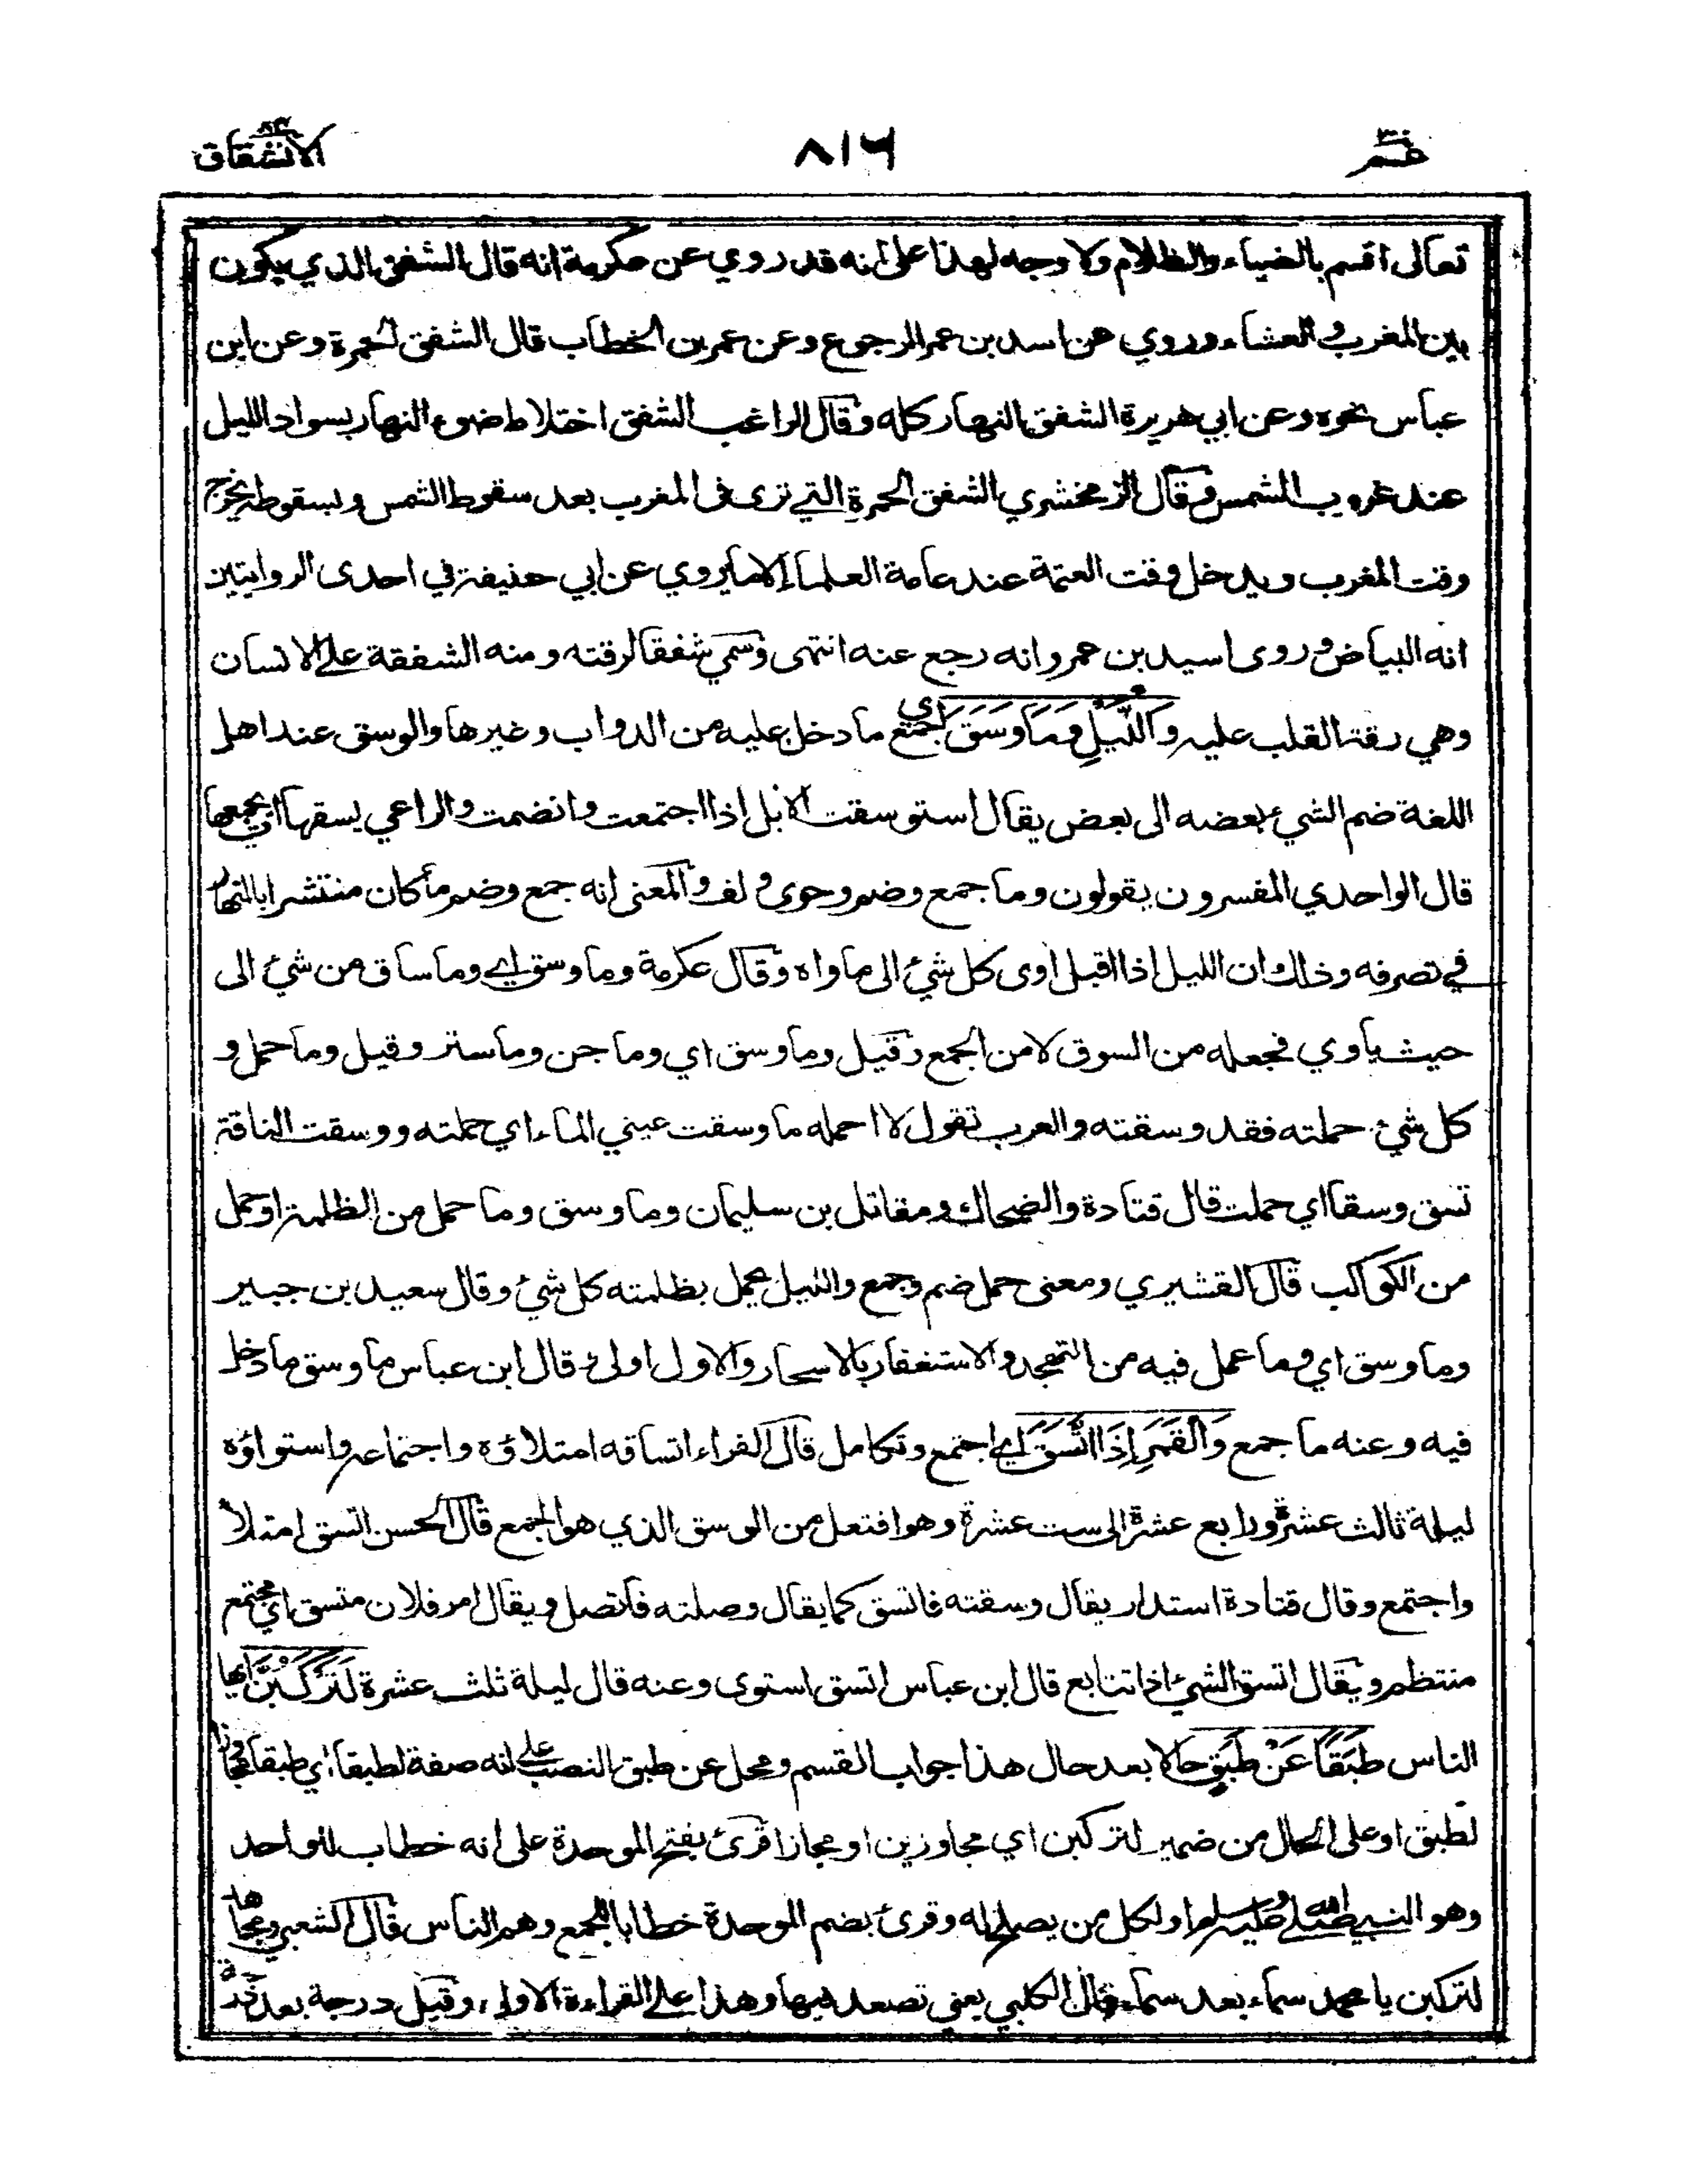 عم ٣٠
٨١٦
الانشقاق ٨٤
تعالى اقسم بالضياء والظلام ولا وجه لهذا على انه قد روي عن عكرمة انه قال الشفق الذي يكون
بين المغرب والعشاء وروي عن اسد بن عمر الرجوع وعن عمر بن الخطاب قال الشفق الحمرة وعن ابن
عباس نحوه وعن ابي هريرة الشفق النهار كله وقال الراغب الشفق اختلاط ضوء النهار بسواد الليل
عند غروب الشمس وقال الزمخشري الشفق الحمرة التي ترى في المغرب بعد سقوط الشمس وبسقوطه يخرج
وقت المغرب ويدخل وقت العتمة عند عامة العلماء إلا ما يروي عن ابي حنيفة في احدى الروايتين
انه البياض وروى اسيد بن عمرو انه رجع عنه انتهى وسمي شفقا لرقته ومنه الشفقة على الانسان
وهي رقة القلب عليه وَاللَّيْلِ وَمَا وَسَقَ اي جمع ما دخل عليه من الدواب وغيرها والوسق عند اهل
اللغة ضم الشيء بعضه الى بعض يقال استوسقت الابل إذا اجتمعت وانضمت والراعي يسقها اي يجمعها
قال الواحدي المفسرون يقولون وما جمع وضم وحوى ولف والمعنى انه جمع وضم ما كان منتشرا بالنهار
في تصرفه وذلك ان الليل إذا اقبل اوى كل شيء الى ماواه وقال عكرمة وما وسق اي وما ساق من شيء الى
حيث ياوي فجعله من السوق لا من الجمع وقيل وما وسق اي وما جن وما ستر وقيل وما حمل و
كل شيء حملته فقد وسقته والعرب تقول لا احمله ما وسقت عيني الماء اي حملته ووسقت الناقة
تسق وسقا اي حملت قال قتادة والضحاك ومقاتل بن سليمان وما وسق وما حمل من الظلمة او حمل
من الكواكب قال القشيري ومعنى حمل ضم وجمع والليل يحمل بظلمته كل شيء وقال سعيد بن جبير
وما وسق اي وما عمل فيه من التهجد والاستغفار بالاسحار والاول اولى قال ابن عباس ما وسق ما دخل
فيه وعنه ما جمع وَالْقَمَرِ إِذَا اتَّسَقَ اي اجتمع وتكامل قال الفراء اتساقه امتلاؤه واجتماعه واستواؤه
ليلة ثالث عشرة ورابع عشرة إلى ست عشرة وهو افتعل من الوسق الذي هو الجمع قال الحسن اتسق امتلأ
واجتمع وقال قتادة استدار يقال وسقته فاتسق كما يقال وصلته فاتصل ويقال امر فلان متسق اي مجتمع
منتظم ويقال اتسق الشيء إذا تتابع قال ابن عباس اتسق استوى وعنه قال ليلة ثلث عشرة لَتَرْكَبُنَّ ايها
الناس طَبَقًا عَنْ طَبَقٍ حالا بعد حال هذا جواب القسم ومحل عن طبق النصب على انه صفة لطبقا اي طبقا مجاوزا
لطبق او على الحال من ضمير لتركبن اي مجاوزين او مجازا قرئ بفتح الموحدة على انه خطاب للواحد
وهو النبي صلى الله عليه وسلم او لكل من يصلح له وقرئ بضم الموحدة خطابا للجمع وهم الناس قال الشعبي ومجاهد
لتركبن يا محمد سماء بعد سماء قال الكلبي يعني تصعد فيها وهذا على القراءة الاولى وقيل درجة بعد درجة